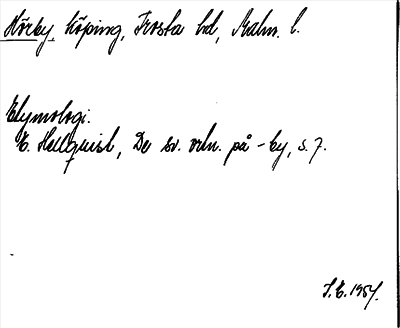 Hörby, köping, Frosta hd, Malm. l.
Etymologi.
E. Hellquist, De sv. ortn. på -by, s. 7.
S. E. 1954.